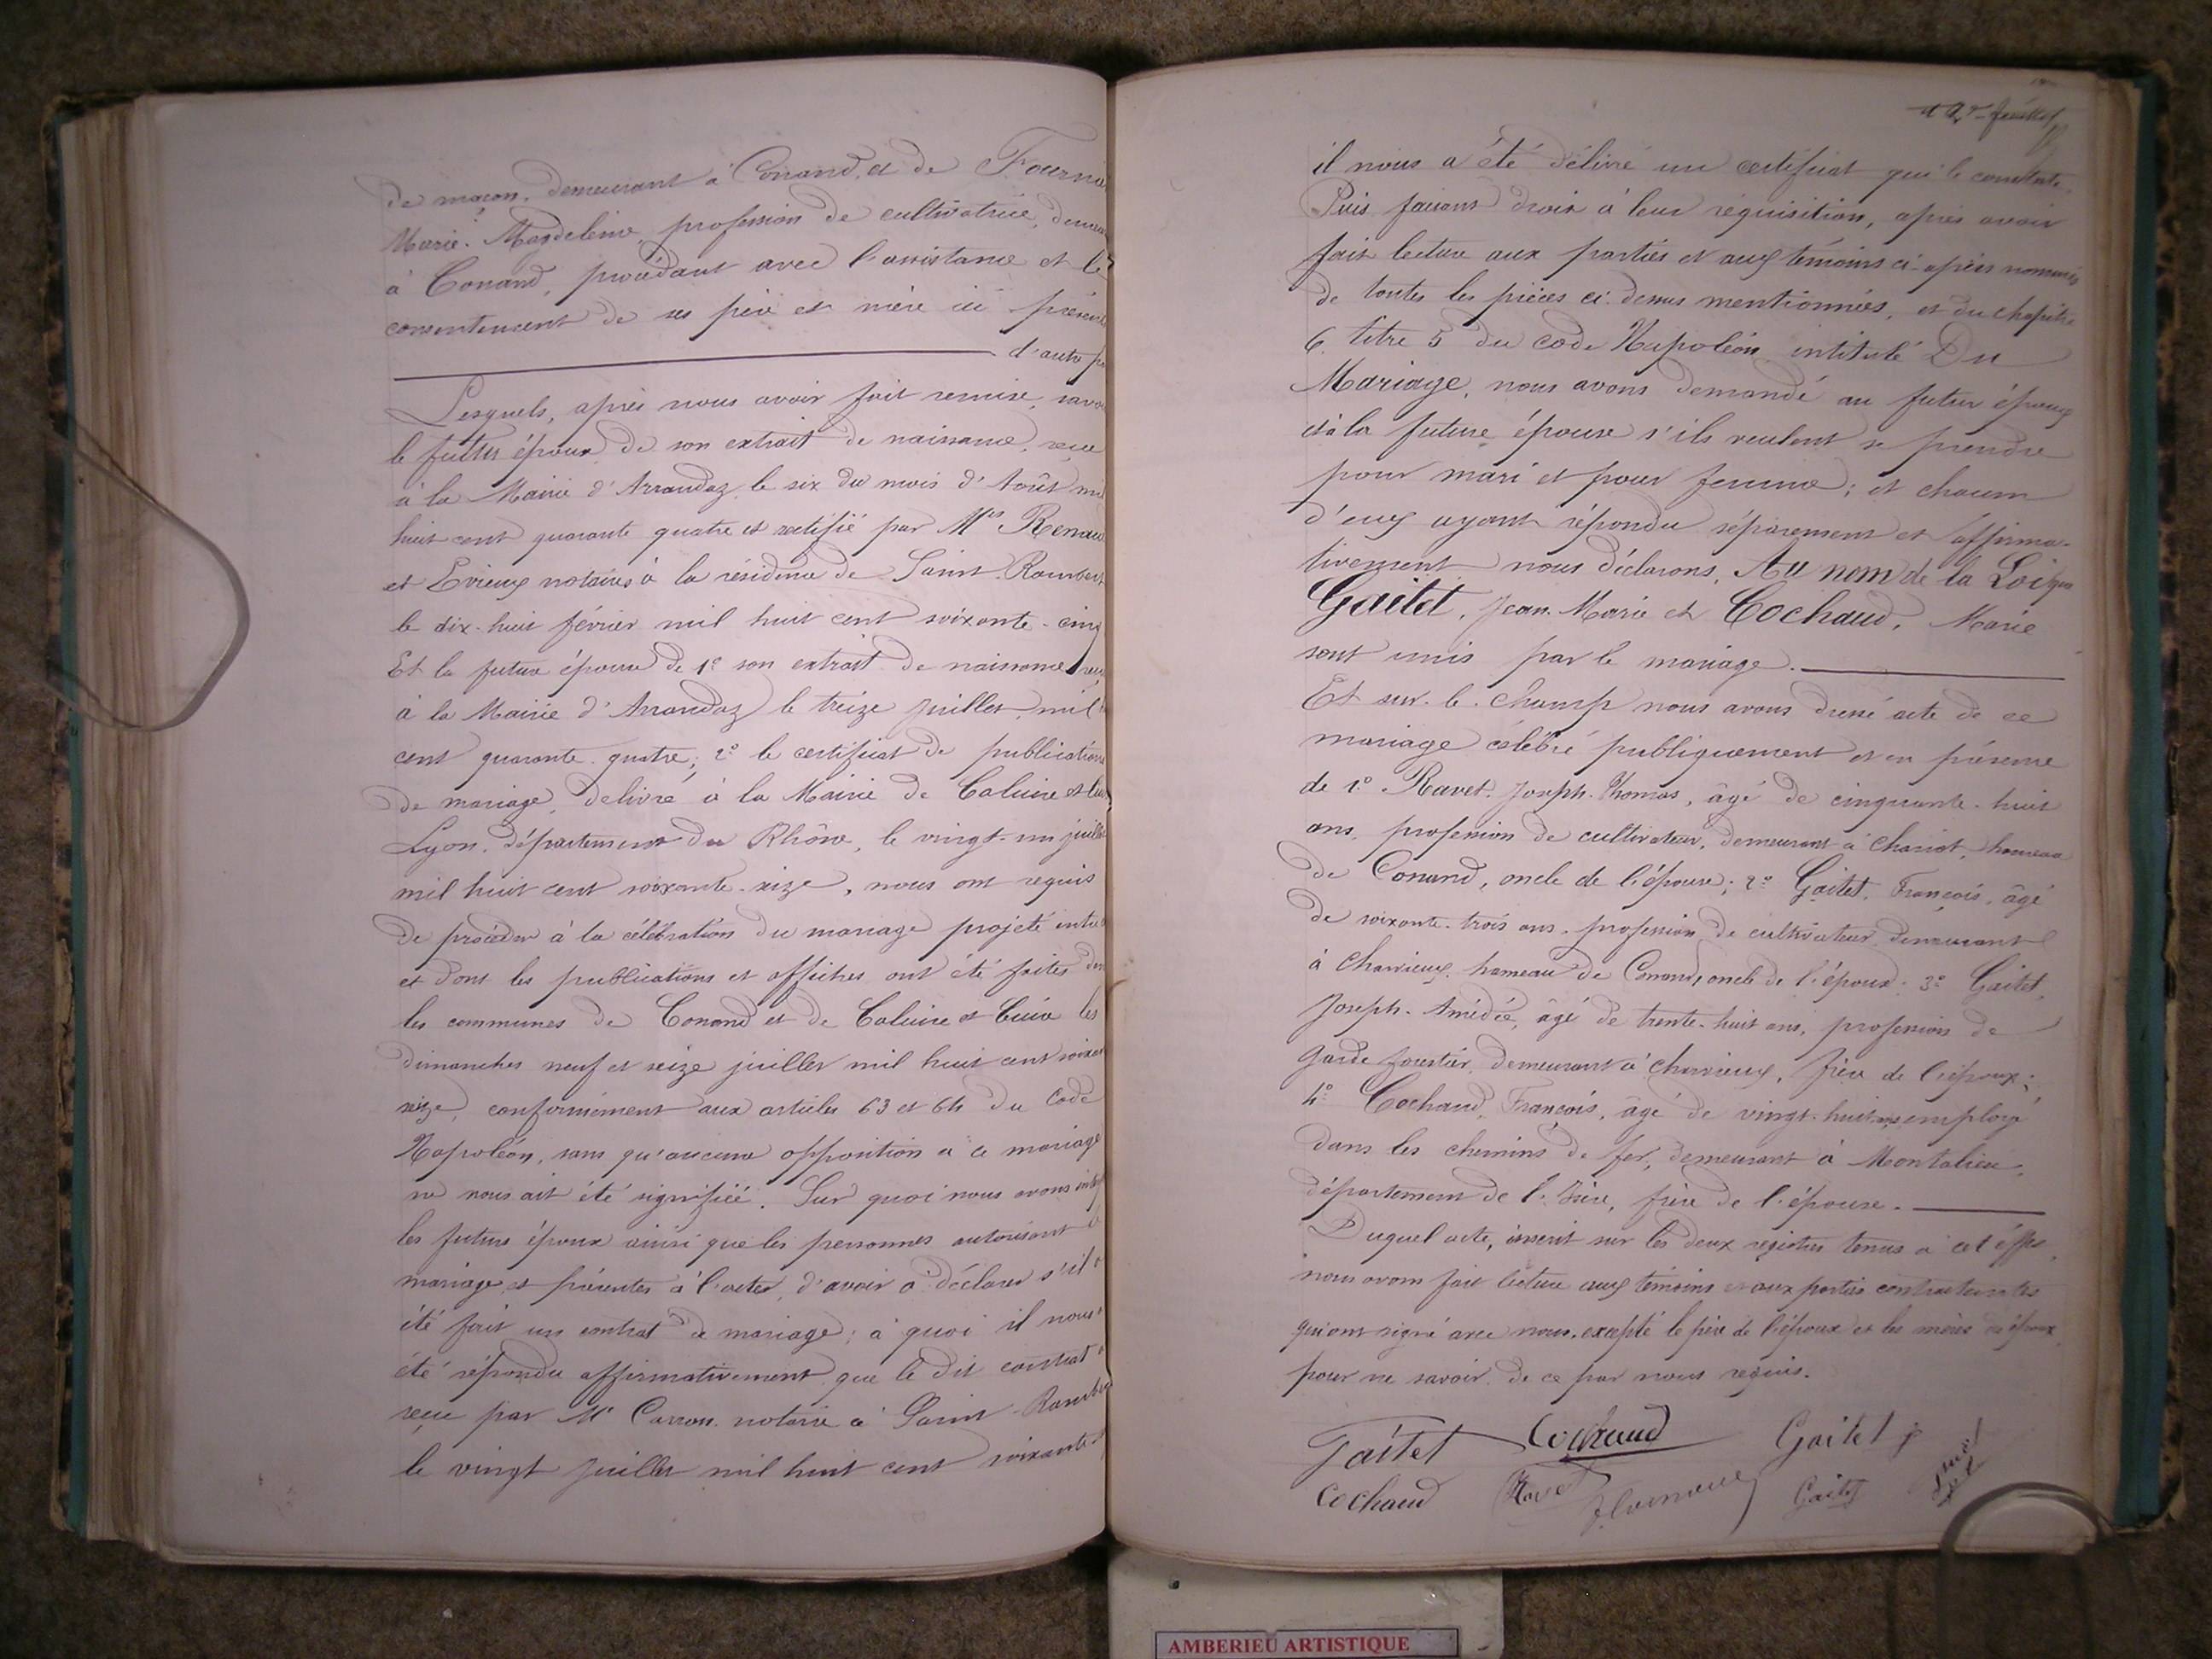 de maçon, demeurant à Conand, et de Fournie
Marie-Magdeleine, profession de cultivatrice, demeu
à Conand, procédant avec l'assistance et le
consentement de ses père et mère ici présen
d'autre pa
Lesquels, après nous avoir fait remise, savo
le futur époux de son extrait de naissance, reçu
à la Mairie d'Arrandaz, le six du mois d'Août mil
huit cent quarante quatre et rectifié par Mes Renaud
et Evieux notaires à la résidence de Saint-Rambert
le dix-huit février mil huit cent soixante-cinq
Et la future épouse de 1º son extrait de naissance reçu
à la Mairie d'Arrandaz le treize juillet, mil
cent quarante-quatre; 2º le certificat de publications
de mariage, délivré à la Mairie de Caluire et Cui
Lyon, département du Rhône, le vingt-un juille
mil huit cent soixante-seize, nous ont requis
de procéder à la célébration du mariage projeté entre
et dont les publications et affiches ont été faites dan
les communes de Conand et de Caluire et Cuire les
dimanches neuf et seize juillet mil huit cent soixan
seize, conformément aux articles 63 et 64 du Code
Napoléon, sans qu'aucune opposition à ce mariage
ne nous ait été signifiée. Sur quoi nous avons interp
les futurs époux ainsi que les personnes autorisant l
mariage et présentes à l'acte, d'avoir à déclarer s'il a
été fait un contrat de mariage; à quoi il nous a
été répondu affirmativement que le dit contrat a
reçu par Me Carron notaire à Saint-Rambe
le vingt juillet mil huit cent soixante s
12e feuillet
il nous a été délivré un certificat qui le constate.
Puis faisant droit à leur réquisition, après avoir
fait lecture aux parties et aux témoins ci-après nommés
de toutes les pièces ci-dessus mentionnées, et du chapitre
6. titre 5 du code Napoléon intitulé Du
Mariage, nous avons demandé au futur époux
et à la future épouse s'ils veulent se prendre
pour mari et pour femme; et chacun
d'eux ayant répondu séparement et affirma-
tivement nous déclarons, Au nom de la Loi que
Gaitet, Jean-Marie et Cochaud, Marie
sont unis par le mariage.
Et sur-le-champ nous avons dressé acte de ce
mariage célébré publiquement et en présence
de 1º Ravet Joseph-Thomas, âgé de cinquante-huit
ans, profession de cultivateur, demeurant à Chariot, hameau
de Conand, oncle de l'épouse; 2º Gaitet, François, âgé
de soixante-trois ans, profession de cultivateur demeurant
à Charvieux hameau de Conand, oncle de l'époux; 3º Gaitet,
Joseph-Amédée, âgé de trente-huit ans, profession de
garde forestier demeurant à Charvieux, frère de l'époux;
4º Cochaud, François, âgé de vingt-huit ans employé
dans les chemins de fer, demeurant à Montalieu,
département de l'Isère, frère de l'épouse.
Duquel acte, inscrit sur les deux registres tenus à cet effet,
nous avons fait lecture aux témoins et aux parties contractantes
qui ont signé avec nous, excepté le père de l'époux et les mères des époux
pour ne savoir, de ce par nous requis.
Gaitet Cochaud Gaitet J
Cochaud Ravet Gaitet
AMBERIEU ARTISTIQUE